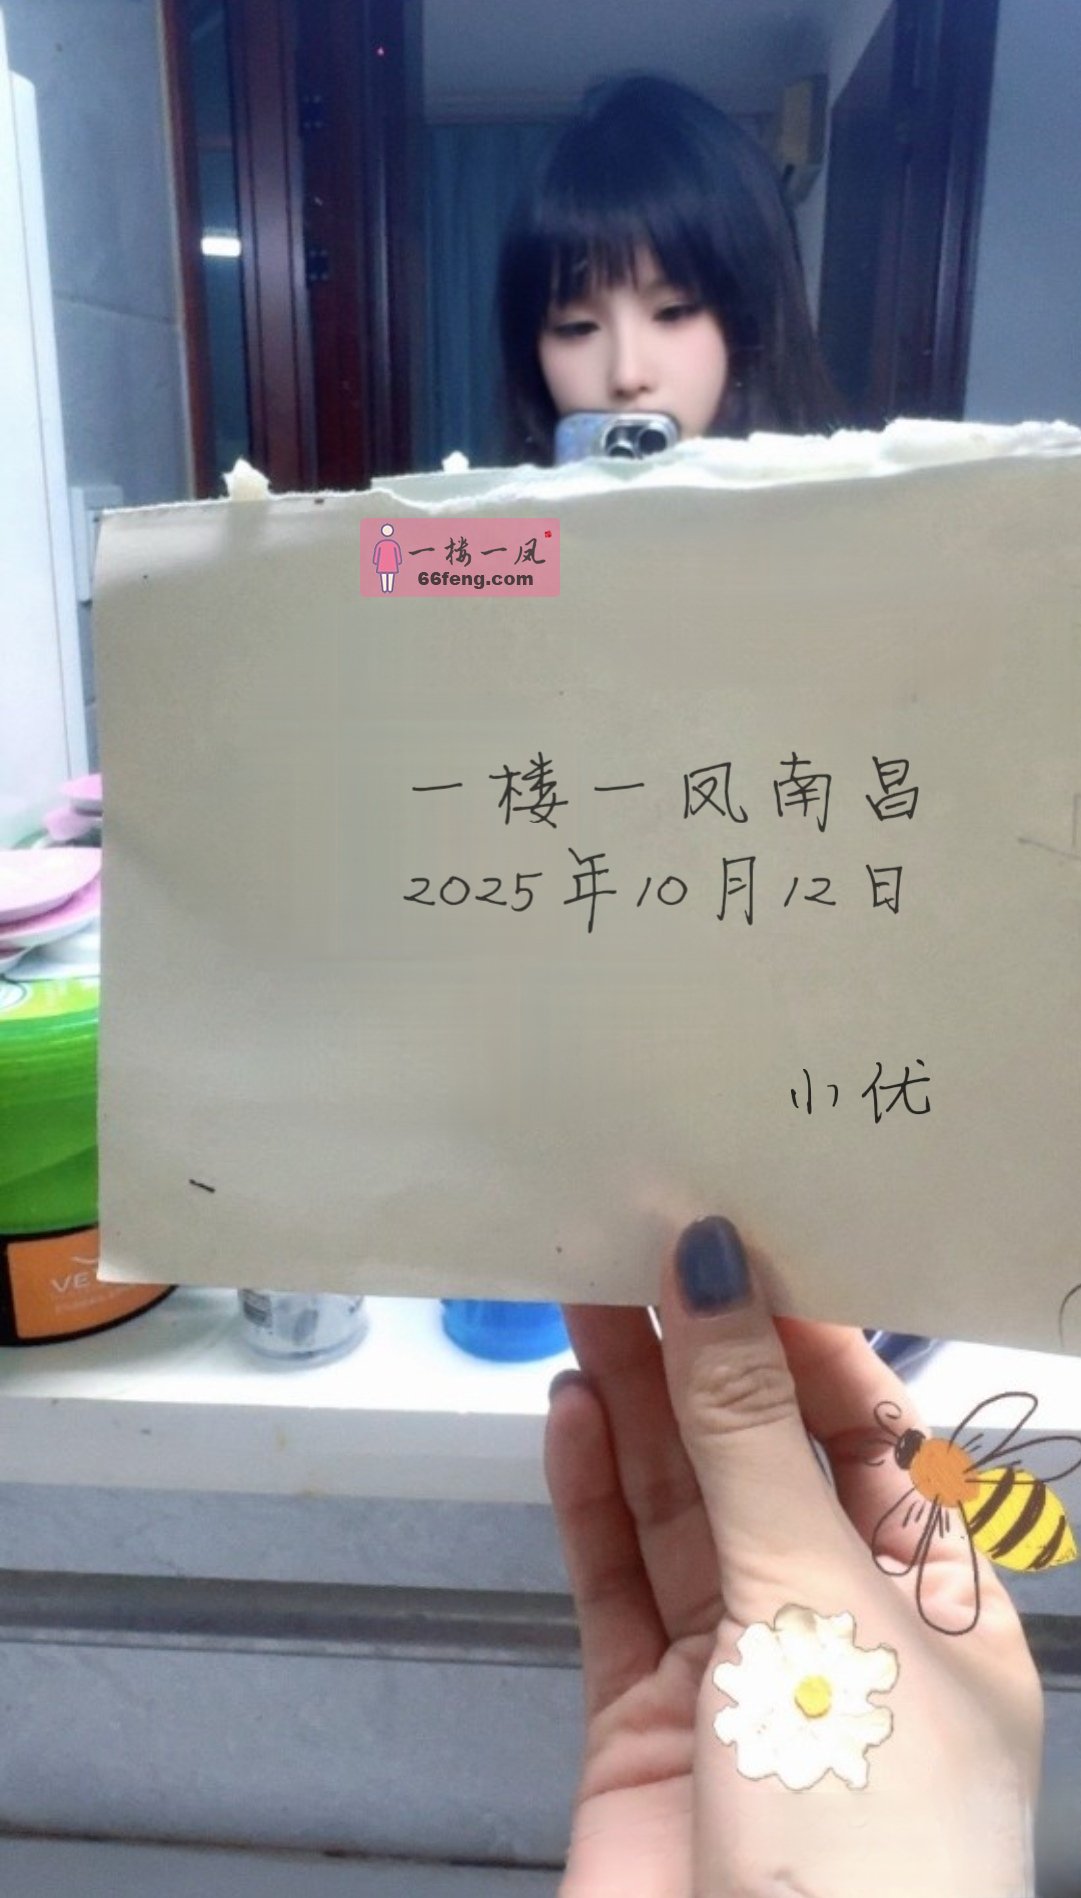 一楼一凤
66feng.com
一楼一凤南昌
2025年10月12日
小优